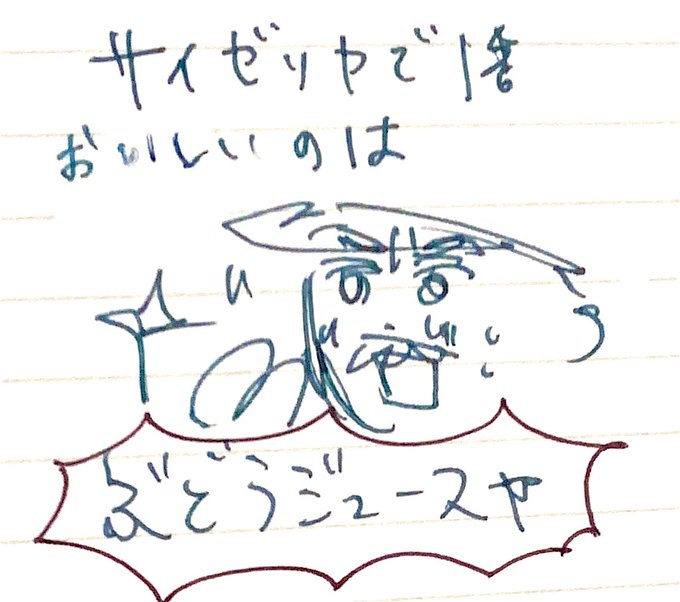 サイゼリヤで1番
おいしいのは
ぶどうジュースや